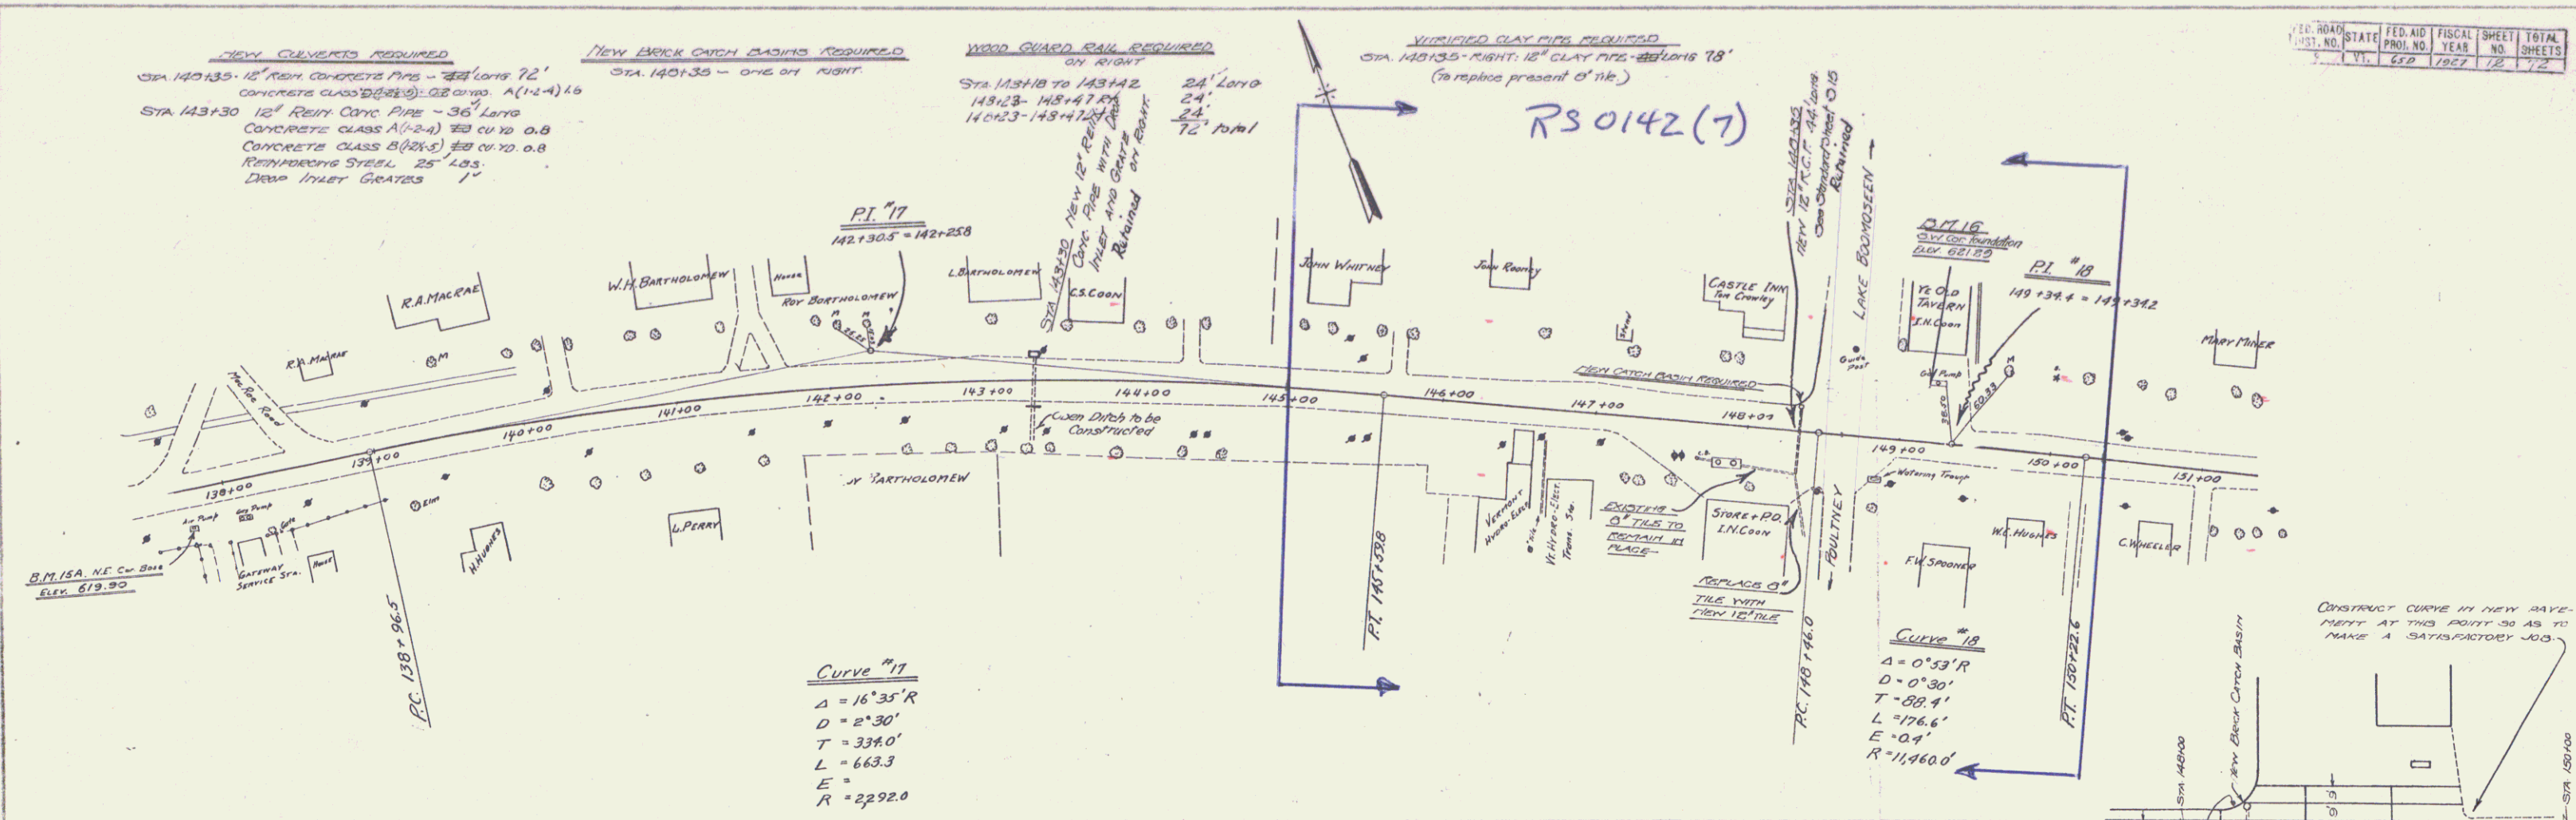 NEW CULVERTS REQUIRED
STA. 148+35 - 12" REIN. CONCRETE PIPE - 44' LONG 72'
CONCRETE CLASS A(1-2-4) 1.6
STA 143+30 12" REIN. CONC. PIPE - 36' LONG
CONCRETE CLASS A(1-2-4) CU YD 0.8
CONCRETE CLASS B(1-2½-5) CU YD. 0.8
REINFORCING STEEL 25 LBS.
DROP INLET GRATES 1
NEW BRICK CATCH BASINS REQUIRED
STA. 148+35 - ONE ON RIGHT.
WOOD GUARD RAIL REQUIRED
ON RIGHT
STA 143+18 TO 143+42 24' LONG
148+23 - 148+47 Rt. 24'
148+23 - 148+47 24
72' total
VITRIFIED CLAY PIPE REQUIRED
STA. 148+35 - RIGHT: 12" CLAY PIPE - LONG 78'
(To replace present 8" Tile.)
RS 0142 (7)
FED. ROAD DIST. NO.
STATE
FED. AID PROJ. NO.
FISCAL YEAR
SHEET NO.
TOTAL SHEETS
VT.
65D
1927
12
72
P.I. #17
142+30.5 = 142+25.8
STA 143+30 NEW 12" REIN.
CONC. PIPE WITH DROP
INLET AND GRATE
Retained ON RIGHT.
STA. 148+35
NEW 12" R.C.P. 44' Long.
See Standard Sheet 015
Retained
LAKE BOOMOSEEN
B.M. 16
S.W. Cor. Foundation
ELEV. 621.29
P.I. #18
149+34.4 = 149+34.2
R.A. MACRAE
R.A. MACRAE
MacRae Road
W.H. BARTHOLOMEW
House
ROY BORTHOLOMEW
L. BARTHOLOMEW
C.S. COON
JOHN WHITNEY
John Rooney
Stand
CASTLE INN
Tom Crowley
Guide Post
YE OLD
TAVERN
I.N. Coon
Gas Pump
38.50
60.93
MARY MINER
NEW CATCH BASIN REQUIRED
138+00
139+00
140+00
141+00
142+00
143+00
144+00
145+00
146+00
147+00
148+00
149+00
150+00
151+00
Open Ditch to be
Constructed
Watering Trough
Air Pump
Gas Pump
Gate
GATEWAY
SERVICE STA.
House
Elm
B.M. 15A. N.E. Cor. Base
ELEV. 619.90
H. HUGHES
L. PERRY
BARTHOLOMEW
VERMONT
HYDRO-ELECT.
Vt. HYDRO-ELECT.
Trans. Sta.
EXISTING
8" TILE TO
REMAIN IN
PLACE
STORE + P.O.
I.N. COON
REPLACE 8"
TILE WITH
NEW 12" TILE
POULTNEY
F.W. SPOONER
W.E. HUGHES
C. WHEELER
P.C. 138+96.5
P.T. 145+59.8
P.C. 148+46.0
P.T. 150+22.6
Curve #17
Δ = 16°35'R
D = 2°30'
T = 334.0'
L = 663.3
E =
R = 2292.0
Curve #18
Δ = 0°53'R
D = 0°30'
T = 88.4'
L = 176.6'
E = 0.4'
R = 11,460.0'
CONSTRUCT CURVE IN NEW PAVE-
MENT AT THIS POINT SO AS TO
MAKE A SATISFACTORY JOB.
STA. 148+00
NEW BRICK CATCH BASIN
9'
STA 150+00